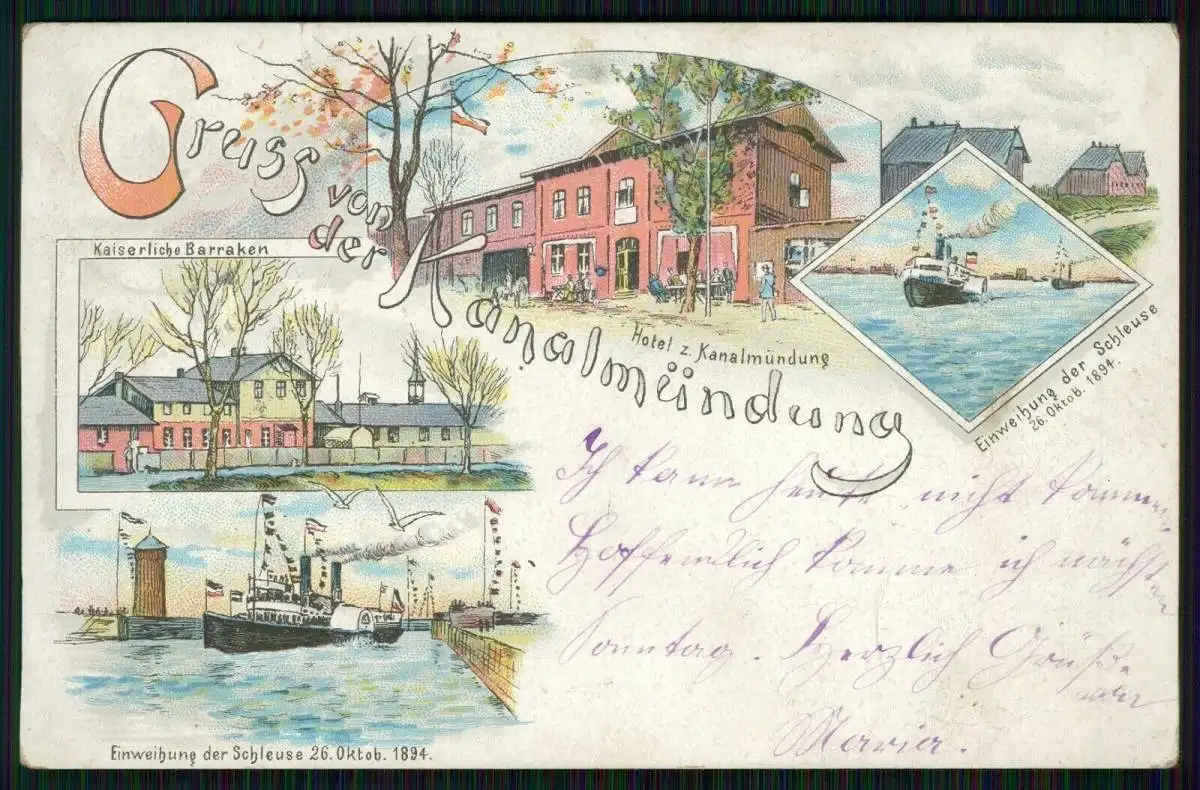 Gruss
von
der
Kanalmündung
Kaiserliche Barraken
Hotel z. Kanalmündung
Einweihung der Schleuse
26. Oktob. 1894.
Ich kann heute nicht kommen,
Hoffendlich komme ich nächsten
Sonntag. Herzlich Grüße
Maria.
Einweihung der Schleuse 26. Oktob. 1894.